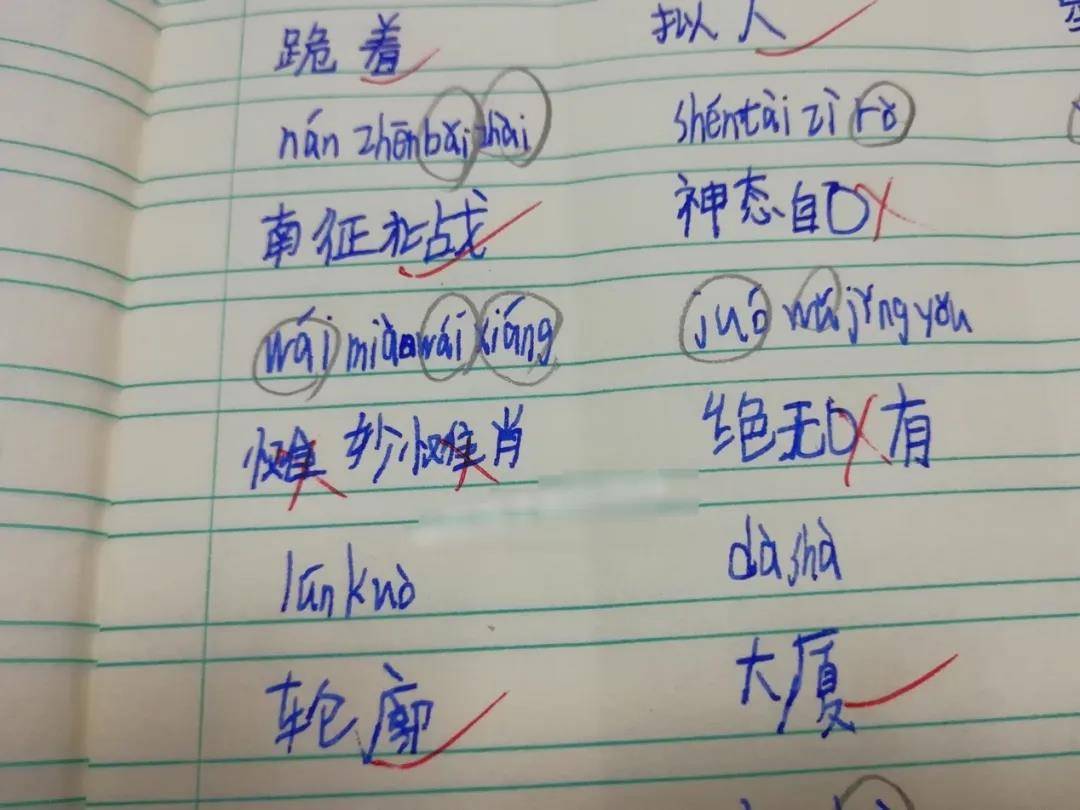 跪着 拟人
nán zhēn bǎi zhài shéntài zì rò
南征北战 神态自
wái miào wái xiáng juó wú jǐng yǒu
妙 肖 绝无 有
lún kuò dà shà
轮廓 大厦